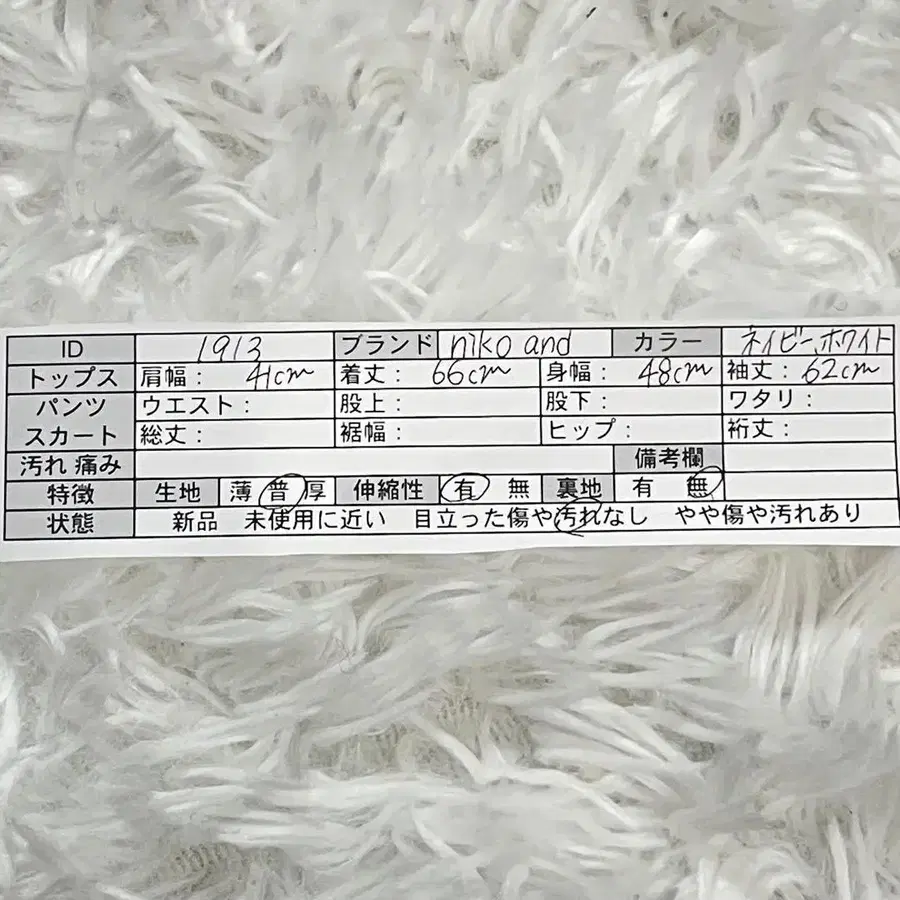 ID 1913 ブランド niko and カラー ネイビー、ホワイト
トップス 肩幅: 41cm 着丈: 66cm 身幅: 48cm 袖丈: 62cm
パンツ ウエスト: 股上: 股下: ワタリ:
スカート 総丈: 裾幅: ヒップ: 裄丈:
汚れ 痛み 備考欄
特徴 生地 薄 普 厚 伸縮性 有 無 裏地 有 無
状態 新品 未使用に近い 目立った傷や汚れなし やや傷や汚れあり